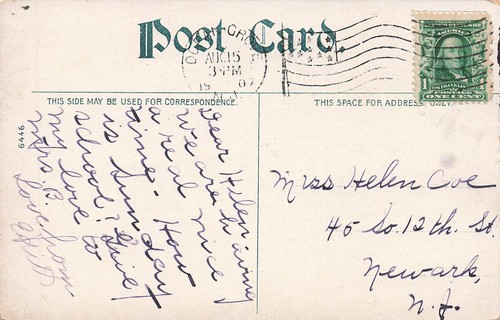 Post Card.
OCEAN GROVE
AUG 15
3-PM
19 07
N.J.
1
U.S. POSTAGE
ONE CENT
THIS SIDE MAY BE USED FOR CORRESPONDENCE.
THIS SPACE FOR ADDRESS ONLY.
6446
Dear Helen
we are having
a real nice
time. How
is Sunday
school? Give
my love to
Mrs. B.
Love from
Miss Helen Coe
45 So. 12th. St.
Newark,
N.J.